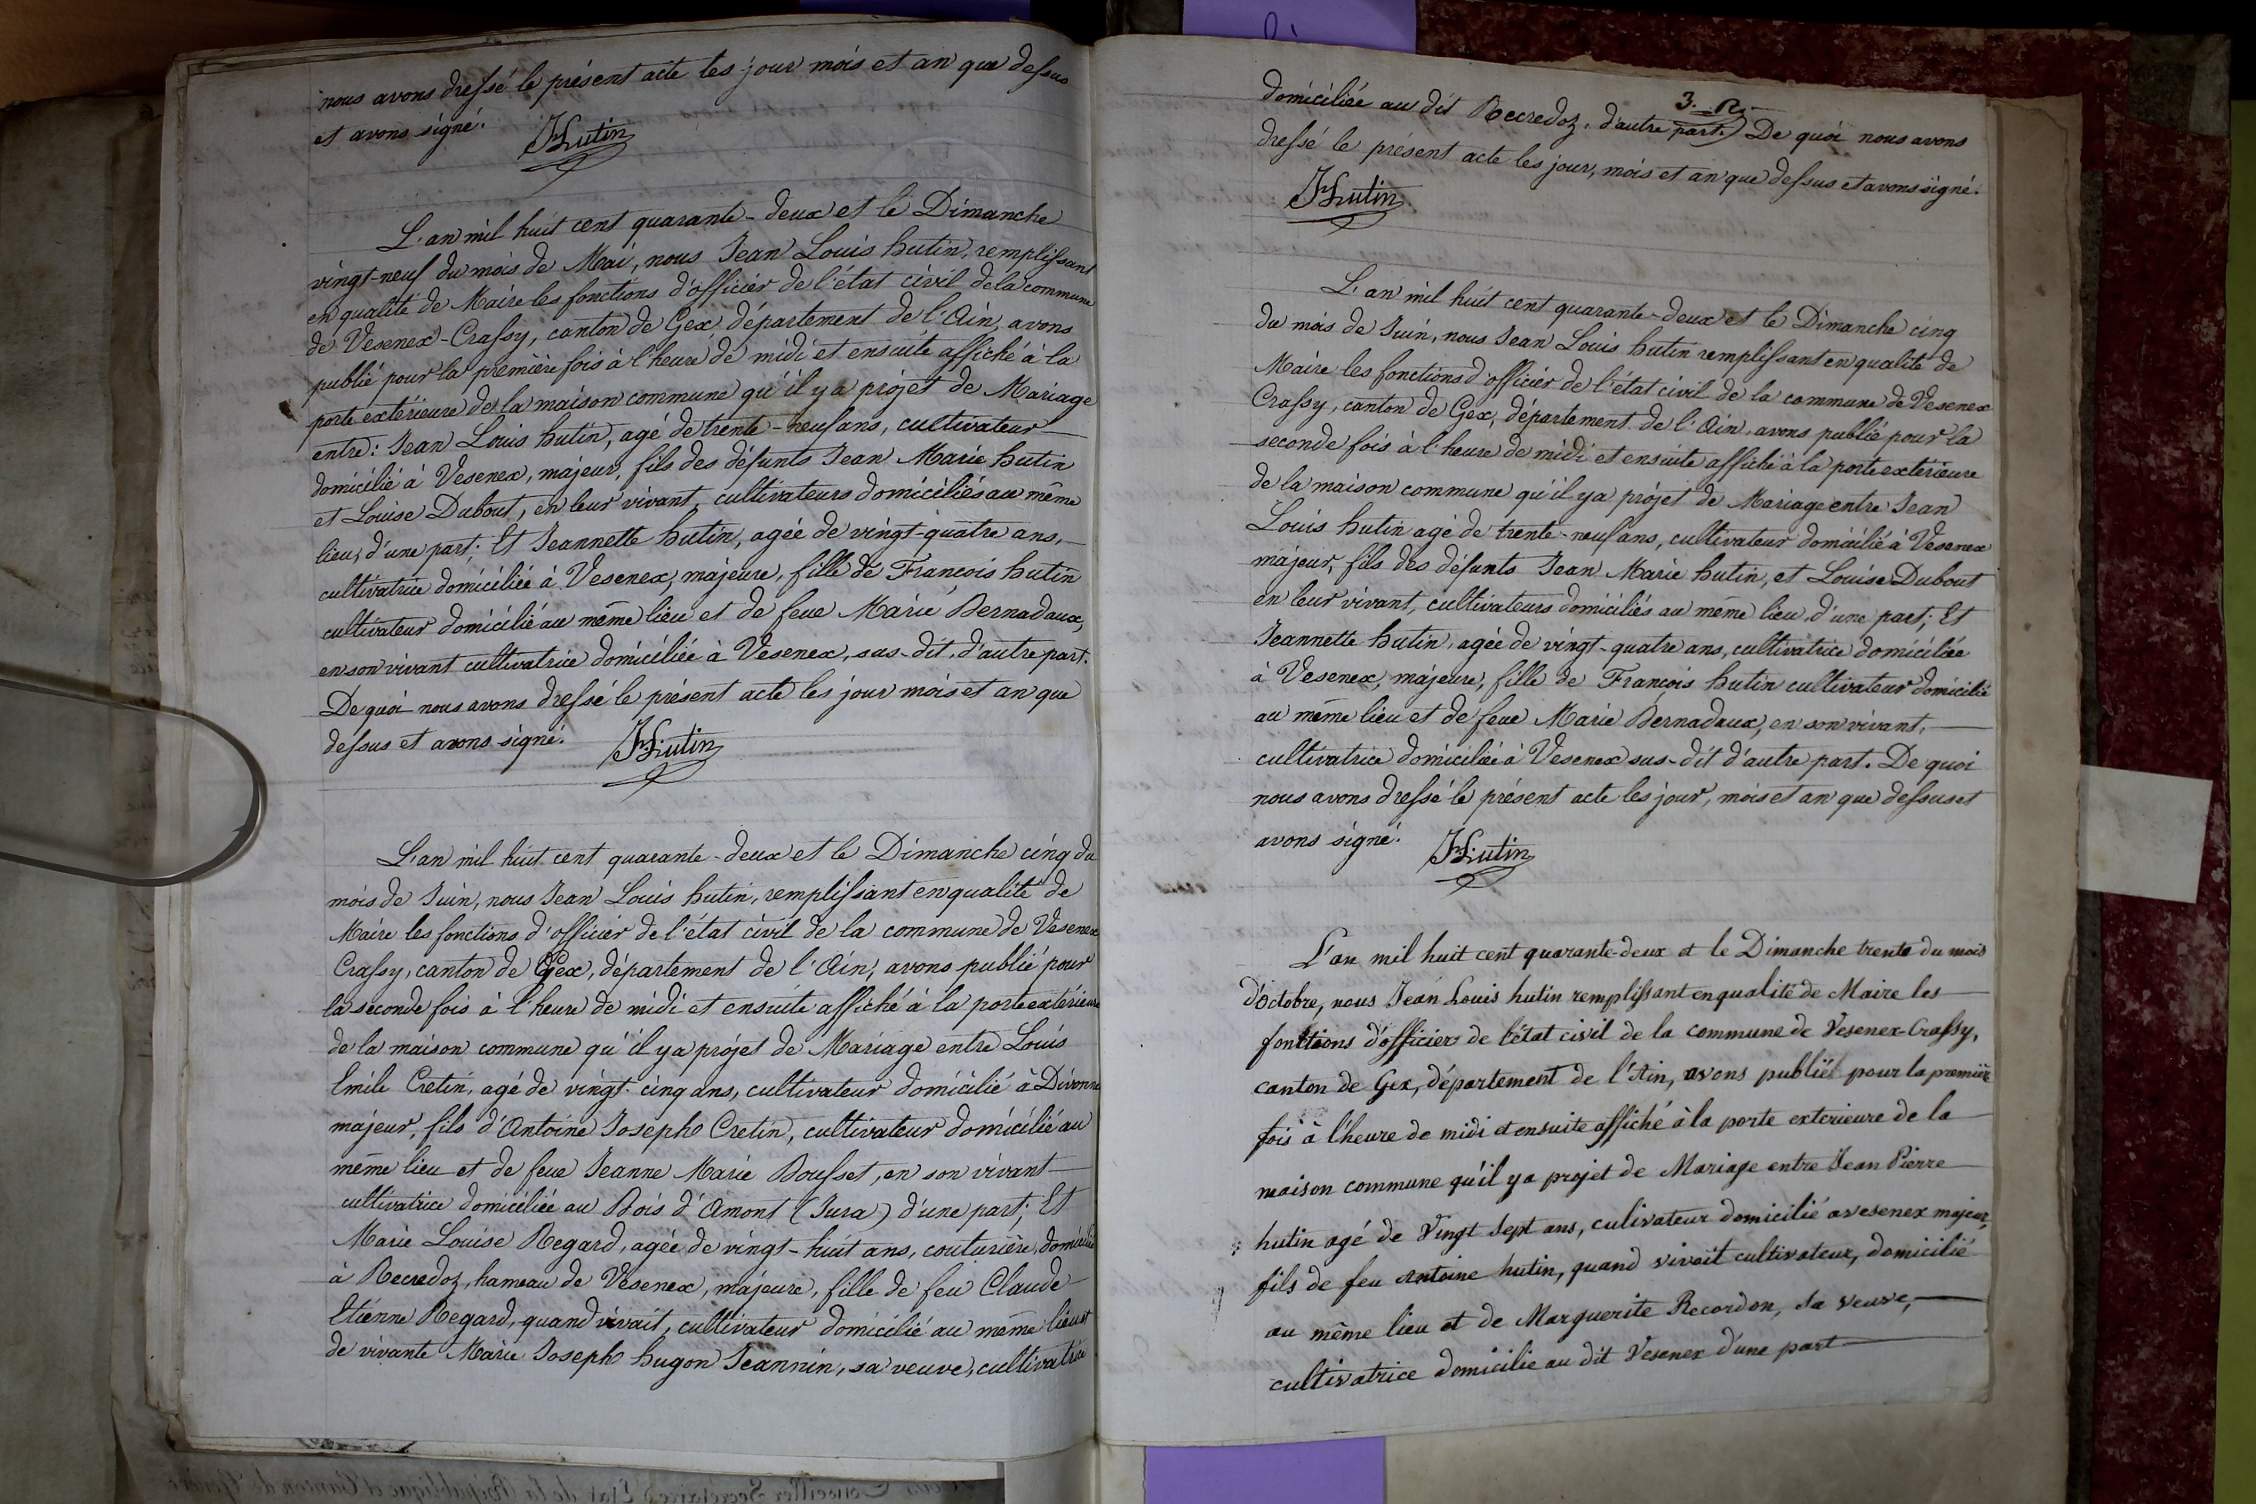 nous avons dressé le présent acte les jour mois et an que dessus
et avons signé.
JHutin
L'an mil huit cent quarante-deux et le Dimanche
vingt-neuf du mois de Mai, nous Jean Louis hutin, remplissant
en qualité de Maire les fonctions d'officier de l'état civil de la commune
de Vesenex-Crassy, canton de Gex département de l'Ain, avons
publié pour la première fois à l'heure de midi et ensuite affiché à la
porte extérieure de la maison commune qu'il y a projet de Mariage
entre: Jean Louis hutin, agé de trente-neuf ans, cultivateur
domicilié à Vesenex, majeur, fils des défunts Jean Marie hutin
et Louise Dubout, en leur vivant, cultivateurs domiciliés au même
lieu, d'une part; Et Jeannette hutin, agée de vingt-quatre ans,
cultivatrice domiciliée à Vesenex, majeure, fille de François hutin
cultivateur domicilié au même lieu et de feue Marie Bernadaux,
en son vivant cultivatrice domiciliée à Vesenex, sus-dit, d'autre part.
De quoi nous avons dressé le présent acte les jour mois et an que
dessus et avons signé.
JHutin
L'an mil huit cent quarante-deux et le Dimanche cinq du
mois de Juin, nous Jean Louis hutin, remplissant en qualité de
Maire les fonctions d'officier de l'état civil de la commune de Vesenex
Crassy, canton de Gex, département de l'Ain, avons publié pour
la seconde fois à l'heure de midi et ensuite affiché à la porte extérieure
de la maison commune qu'il y a projet de Mariage entre Louis
Emile Cretin, agé de vingt-cinq ans, cultivateur domicilié à Divonne
majeur, fils d'Antoine Joseph Cretin, cultivateur domicilié au
même lieu et de feue Jeanne Marie Bousset, en son vivant
cultivatrice domiciliée au Bois d'Amont (Jura) d'une part; Et
Marie Louise Regard, agée de vingt-huit ans, couturière, domiciliée
à Recredoz, hameau de Vesenex, majeure, fille de feu Claude
Etienne Regard, quand vivait, cultivateur domicilié au même lieu et
de vivante Marie Joseph hugon Jeannin, sa veuve, cultivatrice
3. R.
domiciliée au dit Recredoz, d'autre part. De quoi nous avons
dressé le présent acte les jour, mois et an que dessus et avons signé.
JHutin
L'an mil huit cent quarante-deux et le Dimanche cinq
du mois de Juin, nous Jean Louis hutin remplissant en qualité de
Maire les fonctions d'officier de l'état civil de la commune de Vesenex
Crassy, canton de Gex, département de l'Ain, avons publié pour la
seconde fois à l'heure de midi et ensuite affiché à la porte extérieure
de la maison commune qu'il y a projet de Mariage entre Jean
Louis hutin agé de trente-neuf ans, cultivateur domicilié à Vesenex
majeur, fils des défunts Jean Marie hutin, et Louise Dubout
en leur vivant, cultivateurs domiciliés au même lieu, d'une part; Et
Jeannette hutin, agée de vingt-quatre ans, cultivatrice domiciliée
à Vesenex, majeure, fille de François hutin cultivateur domicilié
au même lieu et de feue Marie Bernadaux, en son vivant,
cultivatrice domiciliée à Vesenex sus-dit d'autre part. De quoi
nous avons dressé le présent acte les jour, mois et an que dessus et
avons signé.
JHutin
L'an mil huit cent quarante-deux et le Dimanche trente du mois
d'Octobre, nous Jean Louis hutin remplissant en qualité de Maire les
fonctions d'officiers de l'état civil de la commune de Vesenex-Crassy,
canton de Gex, département de l'Ain, avons publié pour la première
fois à l'heure de midi et ensuite affiché à la porte exterieure de la
maison commune qu'il y a projet de Mariage entre Jean Pierre
hutin agé de Vingt Sept ans, culivateur domicilié a vesenex majeur,
fils de feu Antoine hutin, quand vivait cultivateur, domicilié
au même lieu et de Marguerite Recordon, sa veuve,
cultivatrice domicilie au dit Vesenex d'une part